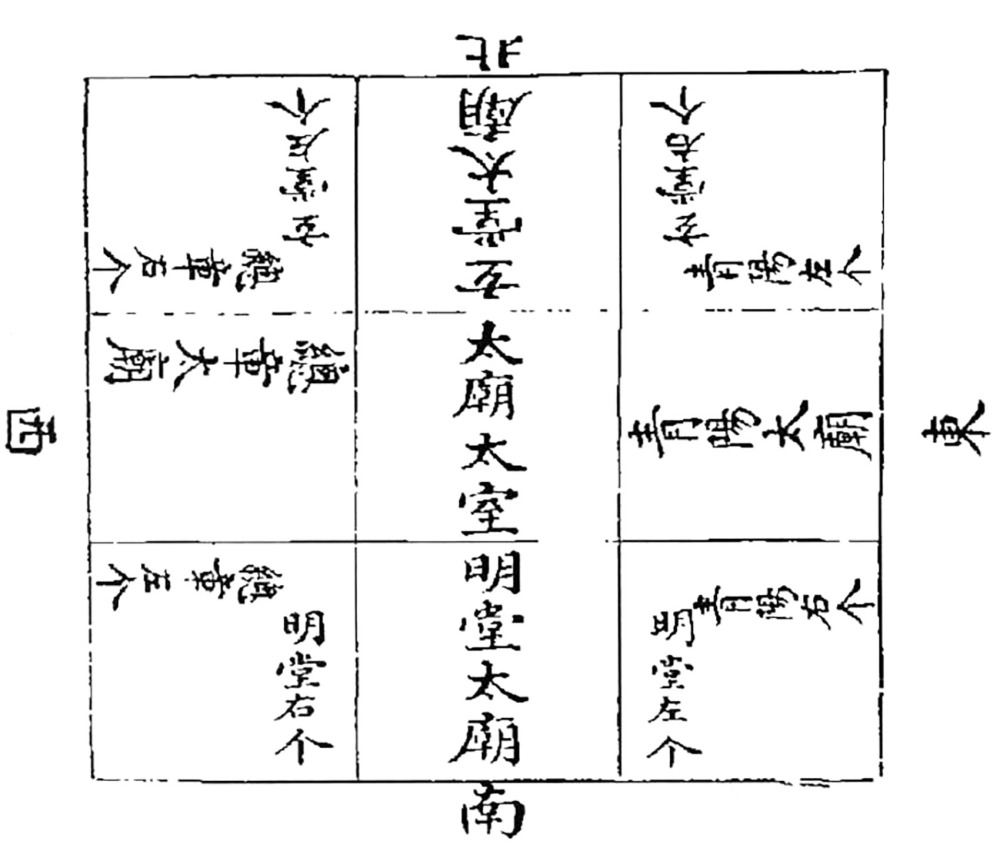 北
玄堂左个
總章右个
玄堂太廟
玄堂右个
青陽左个
西
總章太廟
太廟太室
青陽太廟
東
總章左个
明堂右个
明堂太廟
明堂左个
青陽右个
南